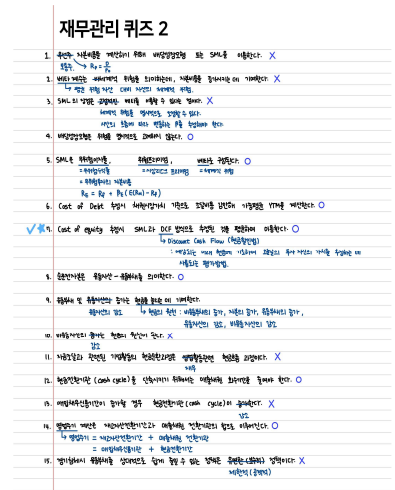 재무관리 퀴즈 2
1. 우선주 자본비용을 계산하기 위해 배당성장모형 또는 SML을 이용한다. X
보통주 → Rp = D/P₀
2. 베타계수는 비체계적 위험을 의미하는데, 자본비용을 증가시키는데 기여한다. X
↳ 평균 위험 자산 대비 자산의 체계적 위험.
3. SML의 단점은 베타를 이용할 수 있다는 점이다. X
체계적 위험을 명시적으로 조정할 수 있다.
시간의 흐름에 따라 변동하는 β를 추정해야 한다.
4. 배당성장모형은 위험을 명시적으로 고려하지 않는다. O
5. SML은 무위험이자율, 위험프리미엄, 베타로 구성된다. O
= 무위험수익률 = 시장리스크 프리미엄 = 체계적 위험
= 무위험투자의 자본비용
RE = Rf + βE(E(RM) - Rf)
6. Cost of Debt 추정시 채권시장가치 기준으로 조달비용 감안해 가중평균 YTM을 계산한다. O
7. Cost of equity 추정시 SML과 DCF 방식으로 추정된 것을 평균하여 이용한다. O
↳ Discount Cash Flow (현금할인법)
: 예상되는 미래 현금에 기초하여 오늘날의 투자 자산의 가치를 추정하는 데
사용되는 평가방법.
8. 순운전자본은 유동자산 - 유동부채를 의미한다. O
9. 유동부채 및 유동자산의 증가는 현금을 늘리는 데 기여한다.
유동자산의 감소 ↳ 현금의 원천 : 비유동부채의 증가, 자본의 증가, 유동부채의 증가,
유동자산의 감소, 비유동자산의 감소
10. 비유동자산의 증가는 현금의 원천이 된다. X
감소
11. 자금조달과 관련된 기업활동의 현금전환과정은 영업활동관련 현금흐름 과정이다. X
재무
12. 현금전환기간 (cash cycle)을 단축시키기 위해서는 매출채권 회수기간을 줄여야 한다. O
13. 매입채무지급기간이 증가할 경우 현금전환기간 (cash cycle)이 증가한다. X
감소
14. 영업주기 계산은 재고자산전환기간과 매출채권 전환기간의 합으로 이루어진다. O
↳ 영업주기 = 재고자산전환기간 + 매출채권 전환기간
= 매입채무기간 + 현금전환기간
15. 경기침체시 유동부채를 상대적으로 쉽게 줄일 수 있는 정책은 유연한(보수적) 정책이다. X
제한적 (공격적)